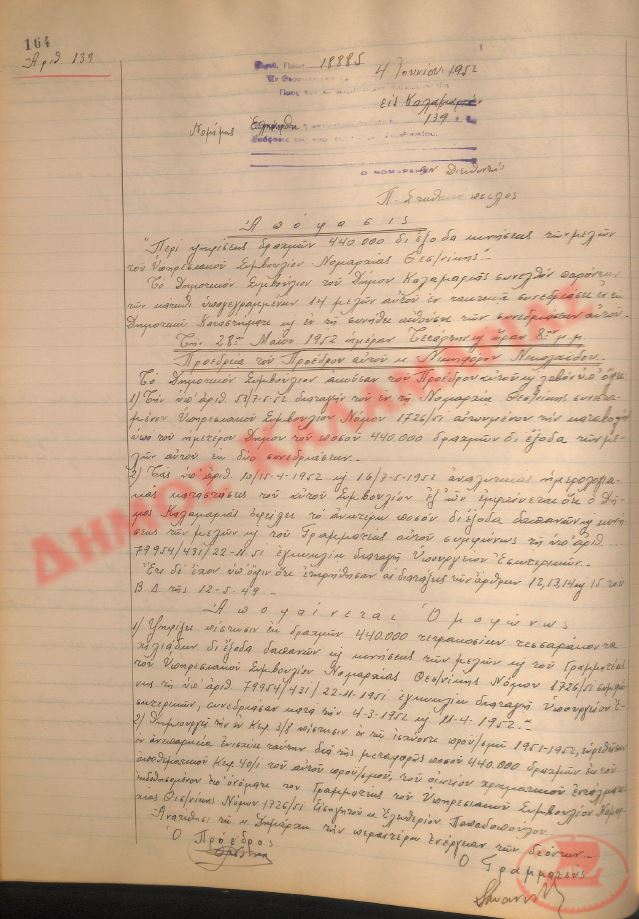 164
Αριθ. 139
Αριθ. Πρωτ. 18885
4 Ιουνίου 1952
Εν Θεσσαλονίκη
Προς τον κ.
εις Καλαμαριάν
139
Νομίμως
Ο ΝΟΜΑΡΧΗΣ
Διευθυντής
Π. Σταθόπουλος
Ἀπόφασις
"Περί ψηφίσεως δραχμῶν 440.000 δι' ἔξοδα κινήσεως τῶν μελῶν
τοῦ Ὑπηρεσιακοῦ Συμβουλίου Νομαρχίας Θεσ/νίκης".
Τό Δημοτικόν Συμβούλιον τοῦ Δήμου Καλαμαριᾶς συνελθόν παρόντων
τῶν κάτωθι ὑπογεγραμμένων 14 μελῶν αὐτοῦ ἐν τακτικῇ συνεδριάσει ἐν τῷ
Δημοτικῷ Καταστήματι κ ἐν τῇ συνήθει αἰθούσῃ τῶν συνεδριάσεων αὐτοῦ
Τήν 28ην Μαΐου 1952 ἡμέραν Τετάρτην κ ὥραν 8ην μ.μ.
Προεδρίᾳ τοῦ Προέδρου αὐτοῦ κ. Νικηφόρου Νικολαΐδου
Τό Δημοτικόν Συμβούλιον ἀκοῦσαν τοῦ Προέδρου αὐτοῦ κ λαβόν ὑπ' ὄψει
1) Τήν ὑπ' ἀριθ. 57/7-5-52 διαταγήν τοῦ ἐν τῇ Νομαρχίᾳ Θεσ/νίκης συνιστα-
μένου Ὑπηρεσιακοῦ Συμβουλίου Νόμου 1726/51 αἰτουμένου τήν καταβολήν
ὑπό τοῦ ἡμετέρου Δήμου τοῦ ποσοῦ 440.000 δραχμῶν δι' ἔξοδα τῶν με-
λῶν αὐτοῦ ἐκ δύο συνεδριάσεων.
2) Τάς ὑπ' ἀριθ. 10/15-4-1952 κ 16/7-5-1952 ἀναλυτικάς ἡμερολογια-
κάς καταστάσεις τοῦ αὐτοῦ Συμβουλίου ἐξ ὧν ἐμφαίνεται ὅτι ὁ Δῆ-
μος Καλαμαριᾶς ὀφείλει τό ἀνωτέρω ποσόν δι' ἔξοδα δαπανῶν κ κινή-
σεως τῶν μελῶν κ τοῦ Γραμματέως αὐτοῦ συμφώνως τῇ ὑπ' ἀριθ.
79954/431/22-11-51 ἐγκυκλίῳ διαταγῇ Ὑπουργείου Ἐσωτερικῶν.
Ἔτι δέ ἔχον ὑπ' ὄψιν ὅτι ἐτηρήθησαν αἱ διατάξεις τῶν ἄρθρων 12, 13, 14 κ 15 τοῦ
Β.Δ. τῆς 12-5-49
Ἀποφαίνεται Ὁμοφώνως
1) Ψηφίζει πίστωσιν ἐκ δραχμῶν 440.000 τετρακοσίων τεσσαράκοντα
χιλιάδων δι' ἔξοδα δαπανῶν κ κινήσεως τῶν μελῶν κ τοῦ Γραμματέως
τοῦ Ὑπηρεσιακοῦ Συμβουλίου Νομαρχίας Θεσ/νίκης Νόμου 1726/51 συμφώ-
νως τῇ ὑπ' ἀριθ. 79954/431/22-11-1951 ἐγκυκλίῳ διαταγῇ Ὑπουργείου Ἐ-
σωτερικῶν, συνεδριάσαν κατά τήν 4-3-1952 κ 11-4-1952.
2) Δημιουργεῖ τήν ἐν Κεφ. 3/8 πίστωσιν ἐν τῷ ἰσχύοντι προϋ/σμῷ 1951-1952, εὑρεθεῖσαν
ἀνεπαρκῆ ἐνισχύει ταύτην διά τῆς μεταφορᾶς ποσοῦ 440.000 δραχμῶν ἐκ τοῦ
ἀποθεματικοῦ Κεφ. 40/1 τοῦ αὐτοῦ προϋ/σμοῦ, τοῦ οἰκείου χρηματικοῦ ἐντάλματος
ἐκδοθησομένου ἐπ' ὀνόματι τοῦ Γραμματέως τοῦ Ὑπηρεσιακοῦ Συμβουλίου Νομαρ-
χίας Θεσ/νίκης Νόμου 1726/51 Εἰσηγητοῦ κ. Ἐλευθερίου Παπαδοπούλου
Ἀνατίθησι τῷ κ. Δημάρχῳ τήν περαιτέρω ἐνέργειαν τῶν δεόντων.
Ὁ Πρόεδρος
Ὁ Γραμματεύς
ΔΗΜΟΣ ΚΑΛΑΜΑΡΙΑΣ